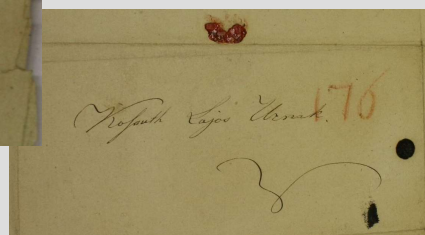 Kossuth Lajos Urnak.
176